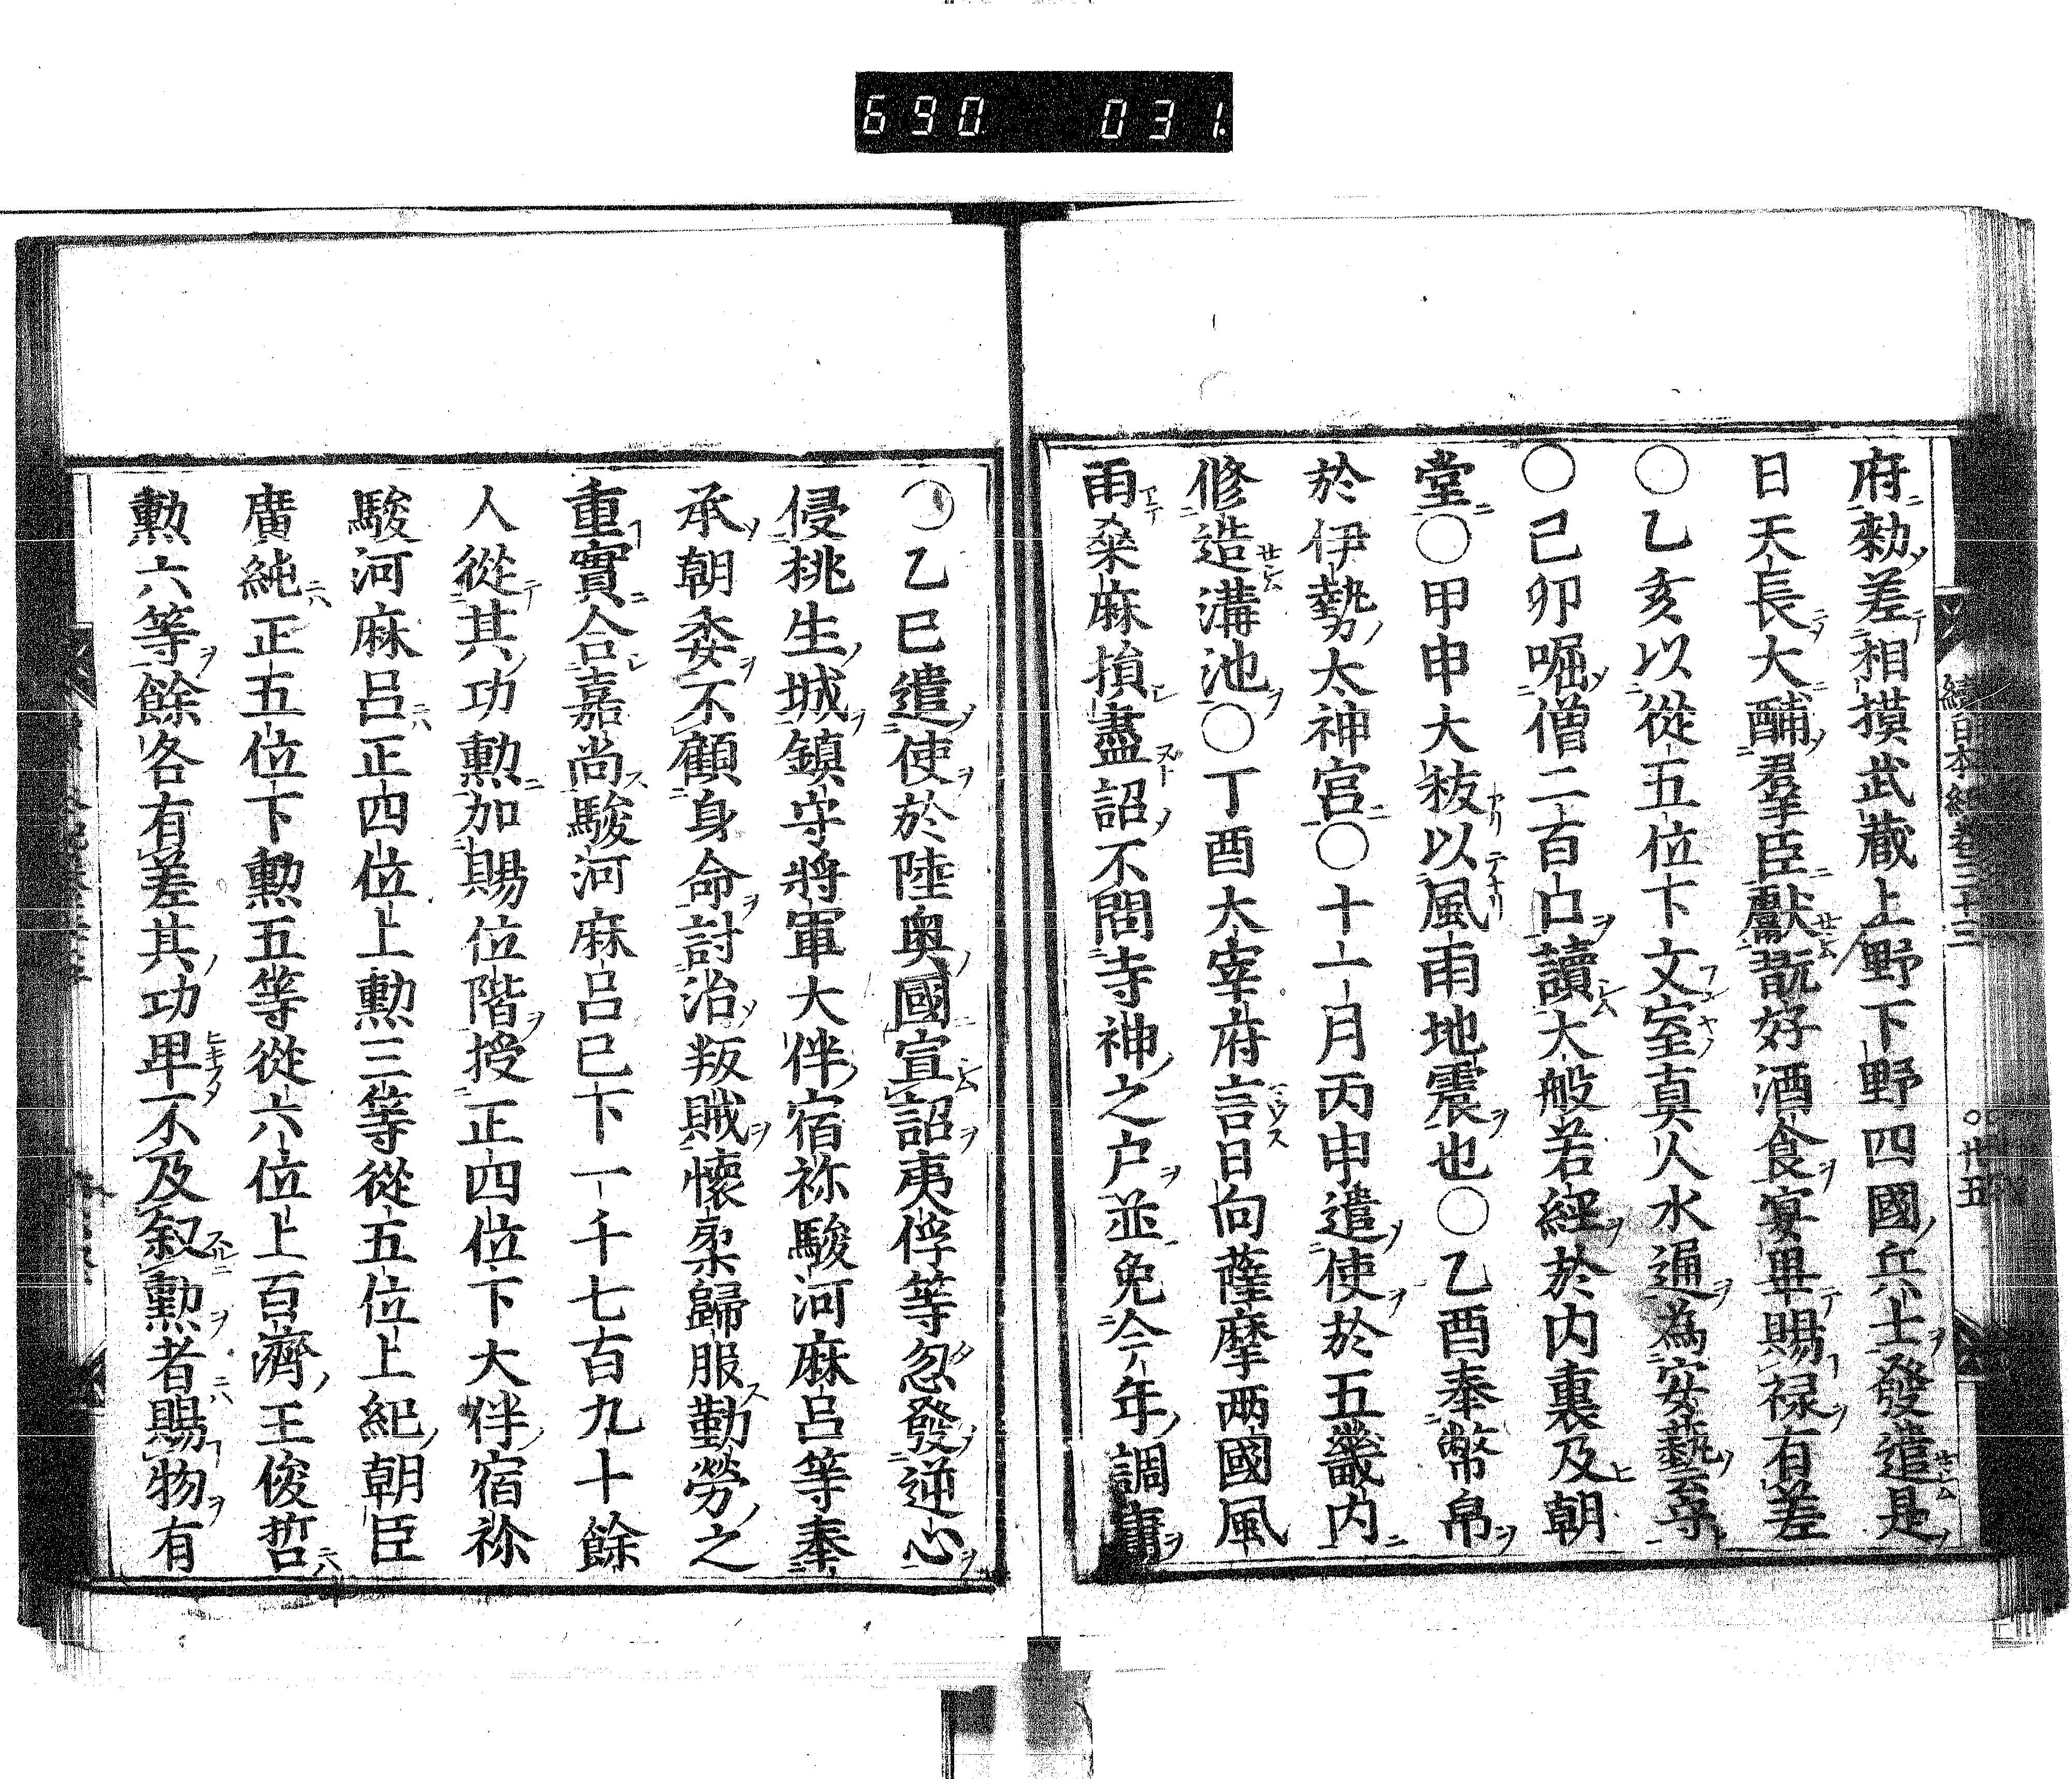 690 031
續日本紀卷三十三
〇卅五
府勑差相摸武蔵上野下野四國兵士發遣是
日天長大酺羣臣獻翫好酒食宴畢賜禄有差
〇乙亥以從五位下文室真人水通為安藝守
〇己卯堀僧二百口讀大般若經於内裏及朝
堂〇甲申大祓以風雨地震也〇乙酉奉幣帛
於伊勢太神宮〇十一月丙申遣使於五畿内
修造溝池〇丁酉大宰府言日向薩摩两國風
雨桒麻損盡詔不問寺神之户並免今年調庸
〇乙巳遣使於陸奥國宣詔夷俘等忽發逆心
侵桃生城鎮守將軍大伴宿祢駿河麻呂等奉
承朝委不顧身命討治叛賊懷柔歸服勤勞之
重實合嘉尚駿河麻呂已下一千七百九十餘
人從其功勲加賜位階授正四位下大伴宿祢
駿河麻呂正四位上勲三等從五位上紀朝臣
廣純正五位下勲五等從六位上百濟王俊哲
勲六等餘各有差其功卑不及叙勲者賜物有